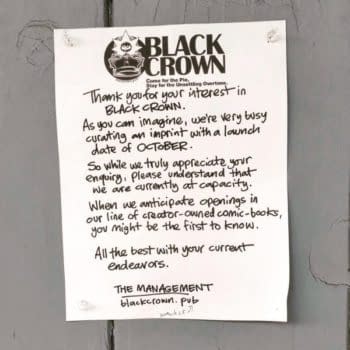 BLACK
CROWN
Come for the Pie,
Stay for the Unsettling Overtone.
Thank you for your interest in
BLACK CROWN.
As you can imagine, we're very busy
curating an imprint with a launch
date of OCTOBER.
So while we truly appreciate your
enquiry, please understand that
we are currently at capacity.
When we anticipate openings in
our line of creator-owned comic-books,
you might be the first to know.
All the best with your current
endeavors.
THE MANAGEMENT
blackcrown.pub